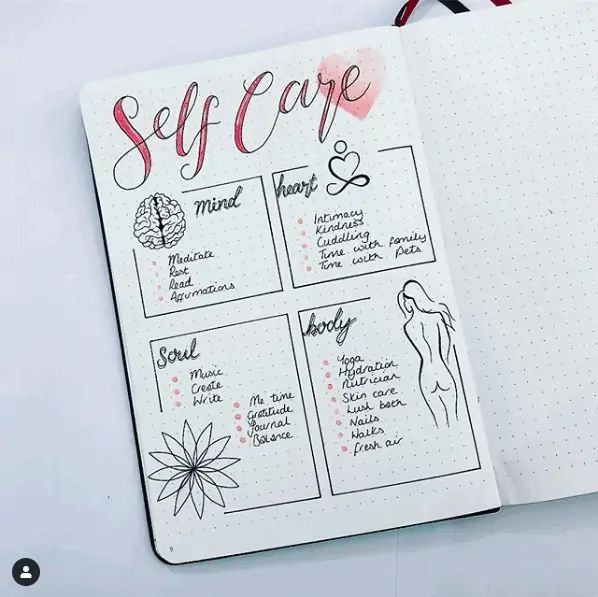 Self Care
mind
Meditate
Rest
Read
Affirmations
heart
Intimacy
Kindness
Cuddling
Time with family
Time with Pets
Soul
Music
Create
Write
Me time
Gratitude
Journal
Balance
body
Yoga
Hydration
Nutrician
Skin care
Lush bath
Nails
Walks
Fresh air
9